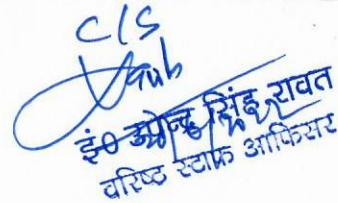 C/S
इं० उपेन्द्र सिंह रावत
वरिष्ठ स्टाफ आफिसर